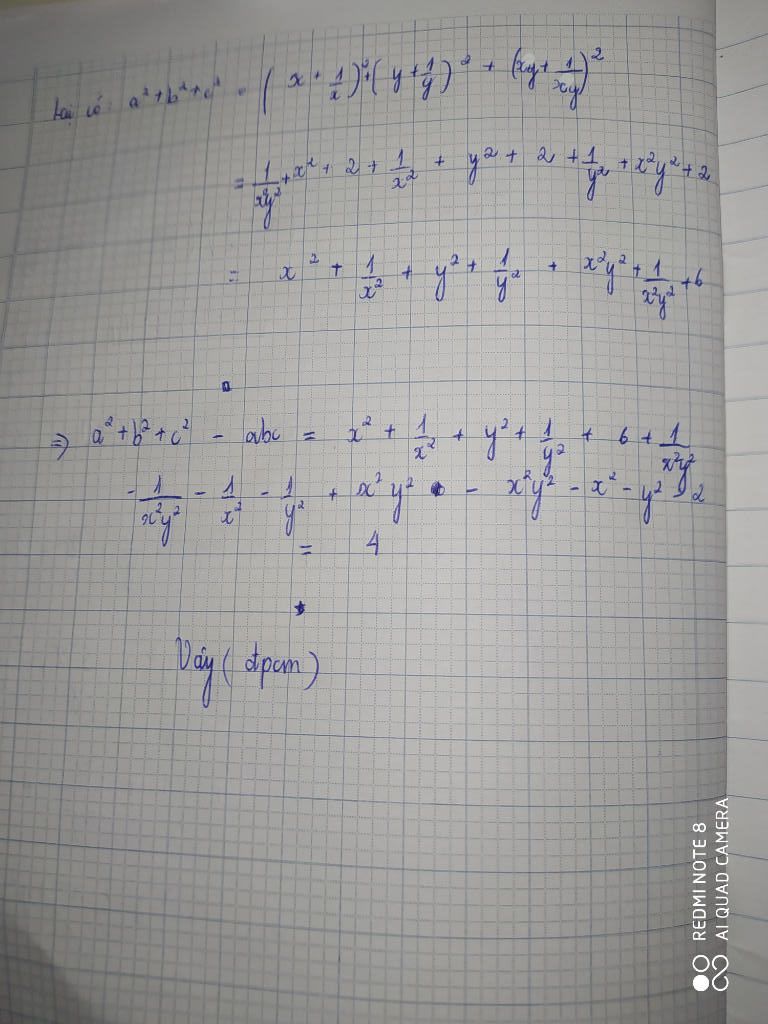 Lại có: a² + b² + c² = (x + 1/x)² + (y + 1/y)² + (xy + 1/xy)²
= 1/x²y² + x² + 2 + 1/x² + y² + 2 + 1/y² + x²y² + 2
= x² + 1/x² + y² + 1/y² + x²y² + 1/x²y² + 6
⇒ a² + b² + c² - abc = x² + 1/x² + y² + 1/y² + 6 + 1/x²y²
- 1/x²y² - 1/x² - 1/y² + x²y² - x²y² - x² - y² - 2
= 4
Vậy (đpcm)
REDMI NOTE 8
AI QUAD CAMERA